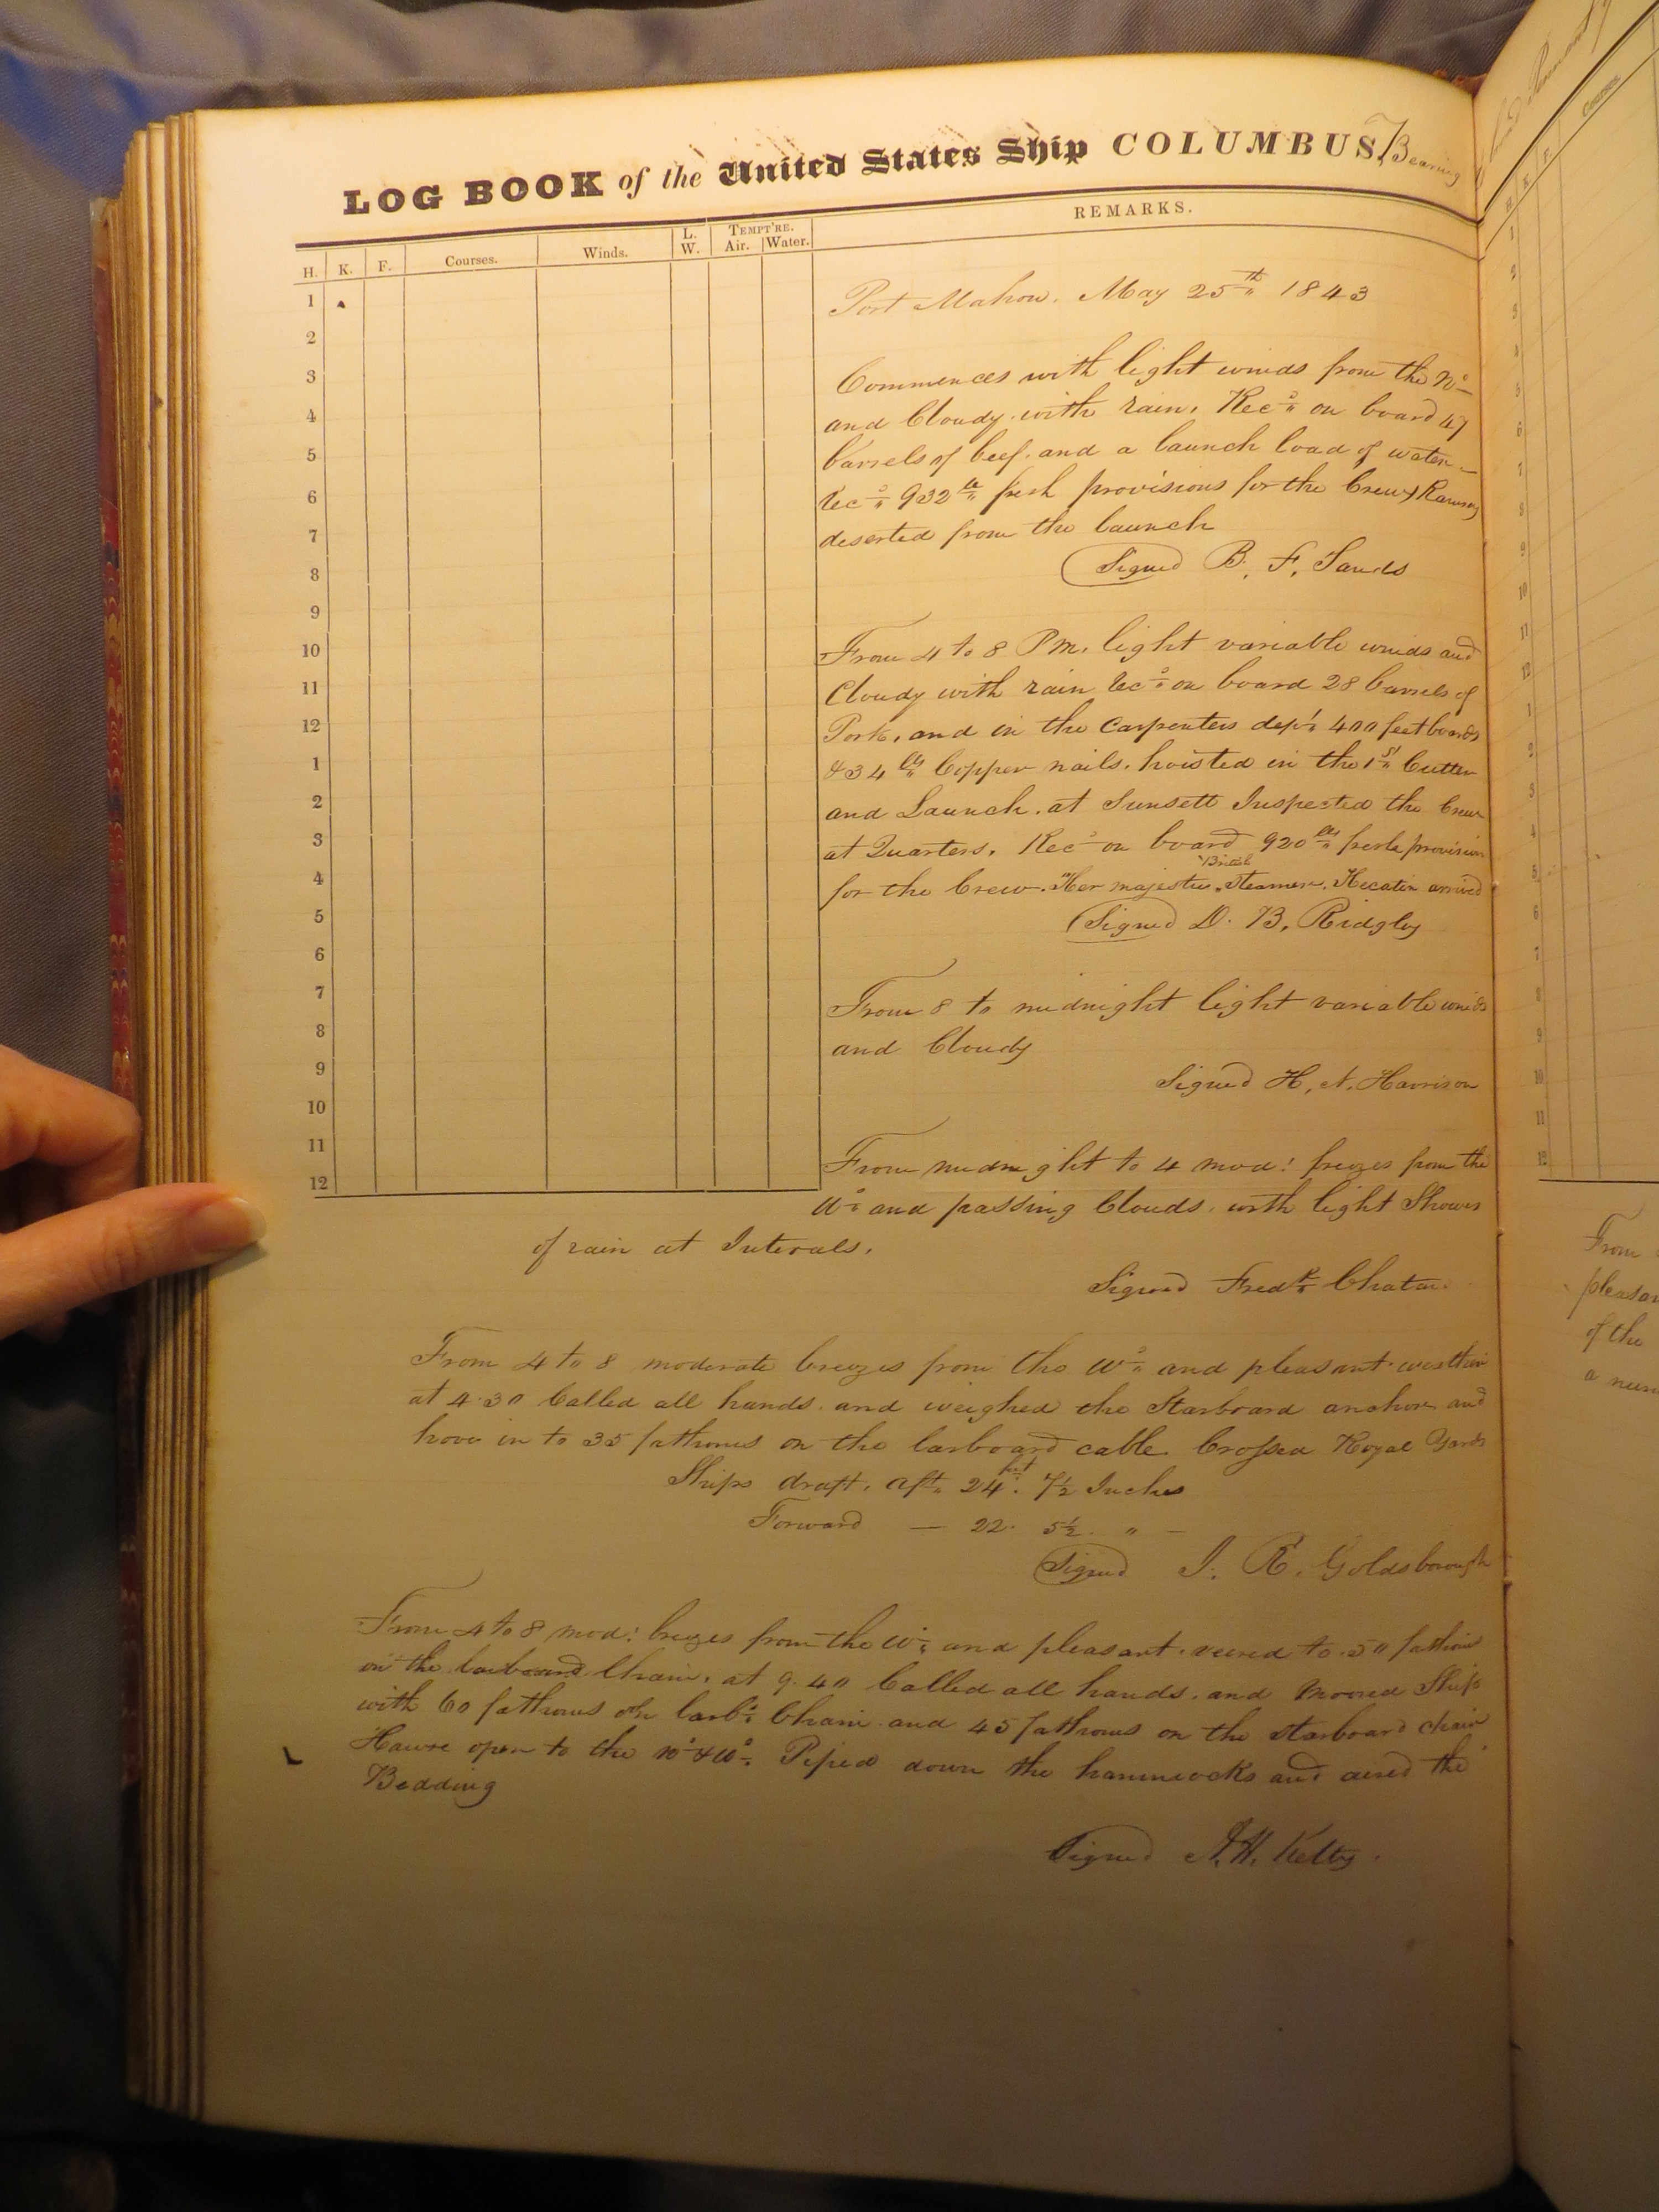 LOG BOOK of the United States Ship COLUMBUS, Bearing
H. K. F. Courses. Winds. L. W. TEMPT'RE. Air. Water. REMARKS.
1
2
3
4
5
6
7
8
9
10
11
12
1
2
3
4
5
6
7
8
9
10
11
12
Port Mahon. May 25th 1843
Commences with light winds from the No
and Cloudy with rain. Recd on board 47
barrels of beef. and a launch load of water
Recd 932 lbs fresh provisions for the Crew
deserted from the launch
Signed B. F. Sands
From 4 to 8 Pm. light variable winds and
Cloudy with rain Recd on board 28 barrels of
Pork, and in the Carpenters dept 400 feet boards
& 34 lbs Copper nails. hoisted in the 1st Cutter
and Launch. at Sunsett Inspected the Crew
at Quarters. Recd on board 920 lbs fresh provision
British
for the Crew. Her majesties Steamer. arrived
Signed D. B. Ridgely
From 8 to midnight light variable winds
and Cloudy
Signed H. N. Harrison
From midnight to 4 mod: breezes from the
Wd and passing Clouds. with light Showers
of rain at Intervals.
Signed Fredk Chatar.
From 4 to 8 moderate breezes from the Wd and pleasant weather
at 4.30 Called all hands. and weighed the Starboard anchor and
hove in to 35 fathoms on the larboard cable. Crossed Royal Yards
Ships draft. aft. 24 feet. 7½ Inches
Forward — 22. 5½. " —
Signed J. R. Goldsborough
From 4 to 8 mod: breezes from the Wd and pleasant. veered to 50 fathoms
on the larboard Chain. at 9.40 Called all hands. and Moored Ship
with 60 fathoms on larbd Chain and 45 fathoms on the starboard chain
Hawse open to the Nd & Wd. Piped down the hammocks and aired the
Bedding
Signed A. H. Kelty.
Courses
From
pleasan
of the
a num